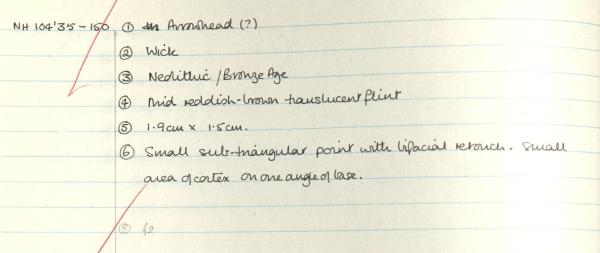 NH 104'35-150 ① Arrowhead (?)
② Wick
③ Neolithic / Bronze Age
④ Mid reddish-brown translucent flint
⑤ 1.9cm x 1.5cm.
⑥ Small sub-triangular point with bifacial retouch. Small
area of cortex on one angle of base.
⑧ f2